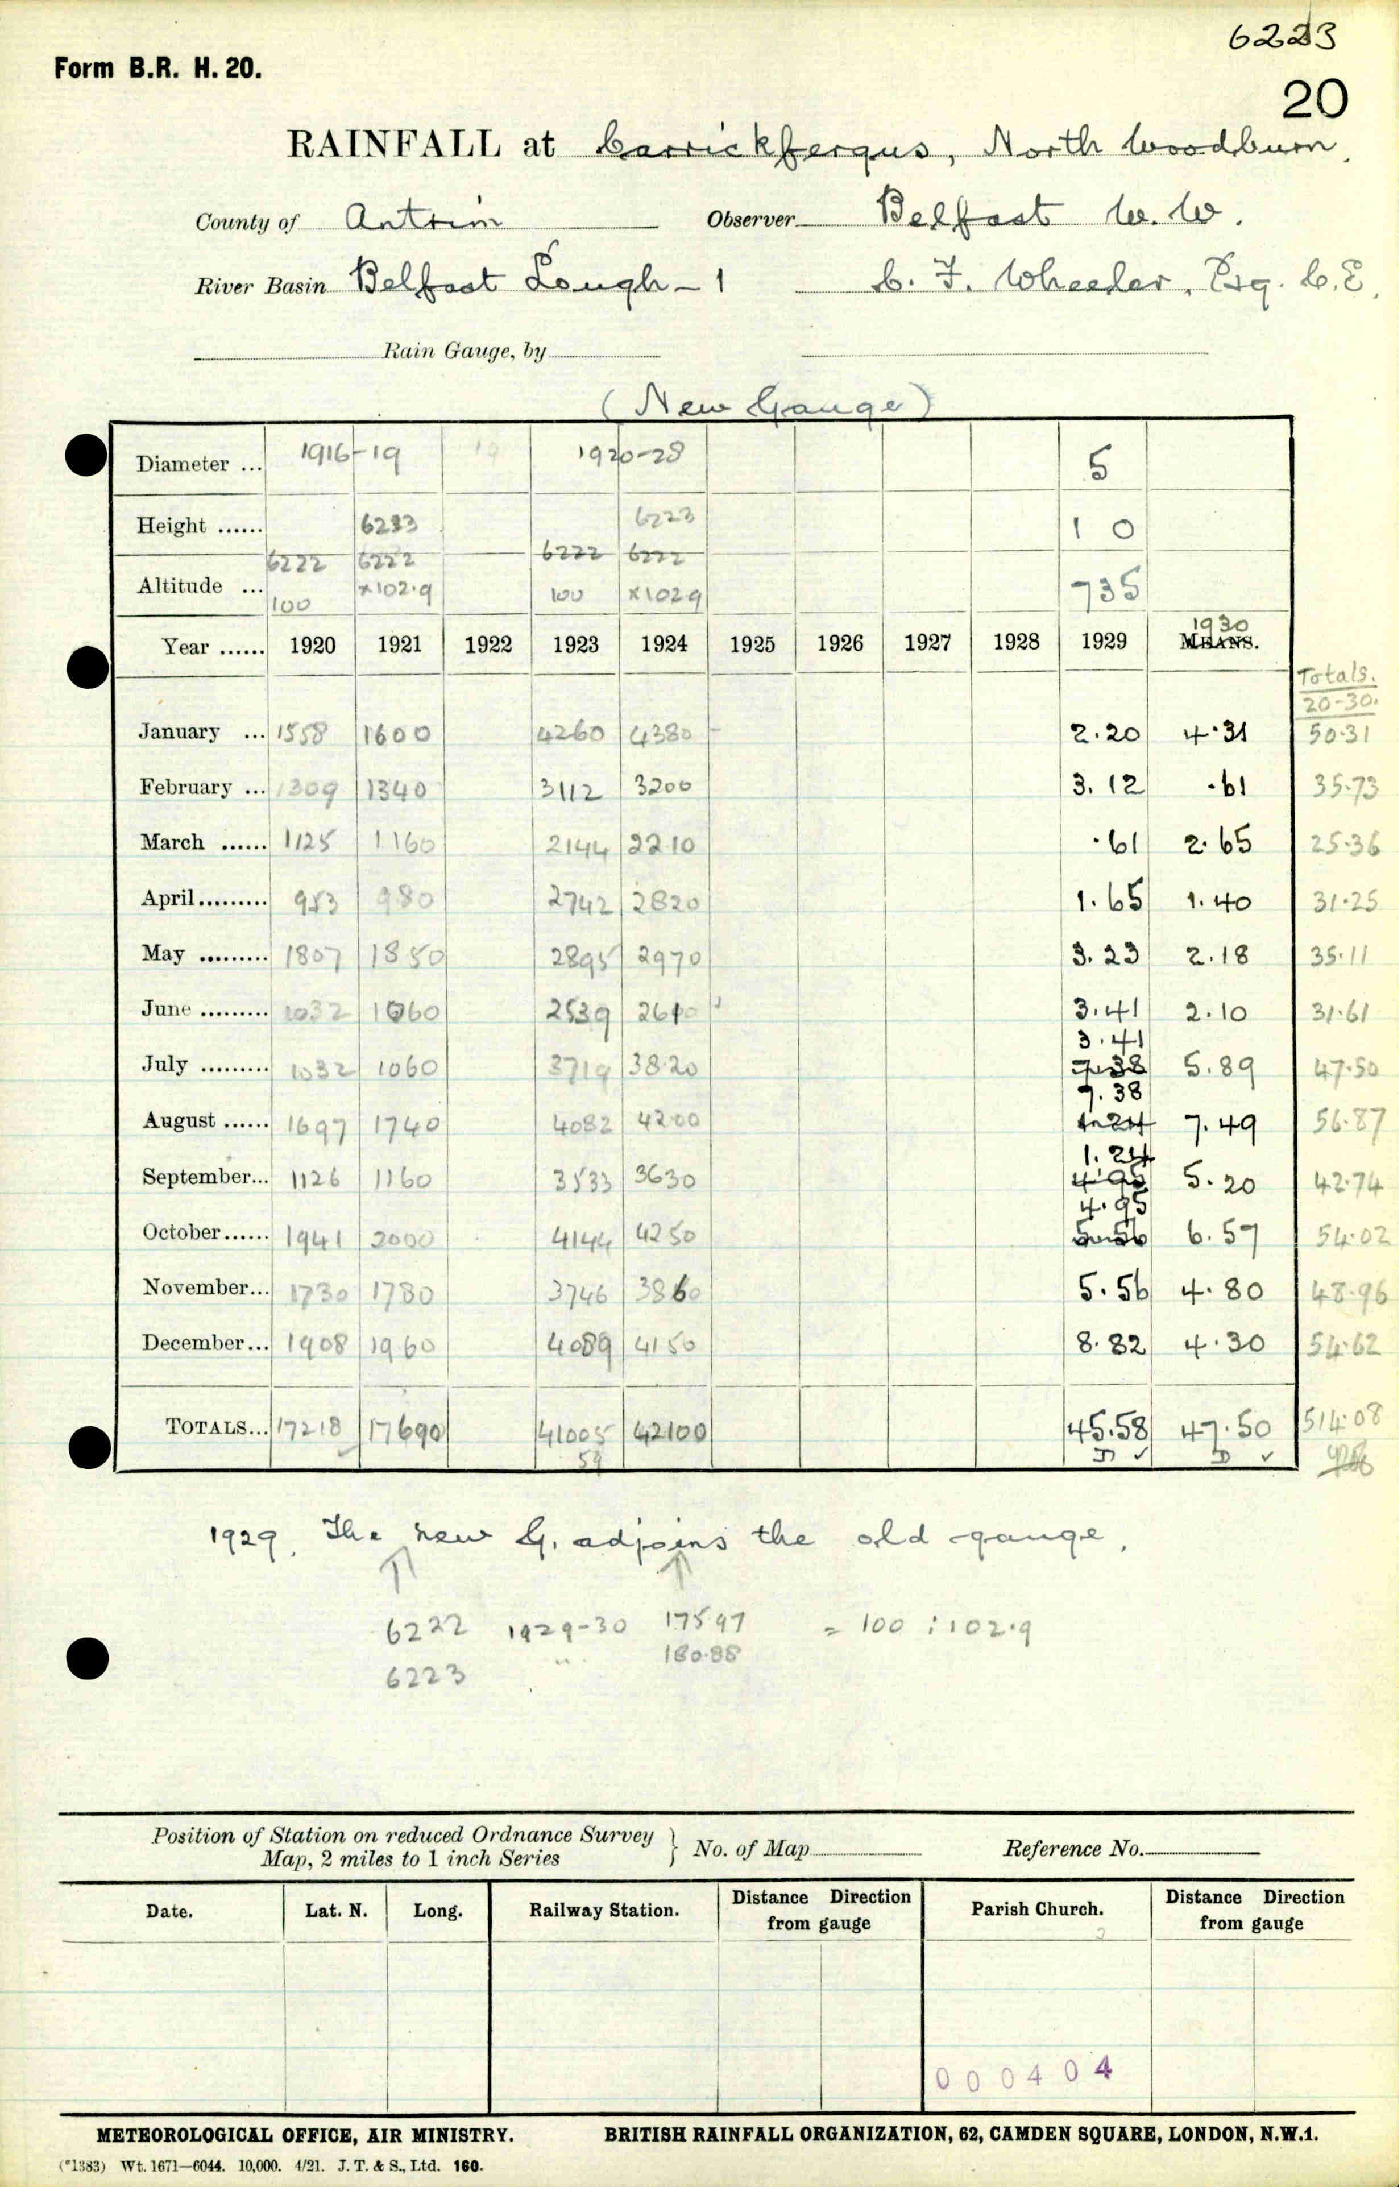 6223
Form B.R. H. 20.
20
RAINFALL at Carrickfergus, North Woodburn.
County of Antrim Observer Belfast W. W.
River Basin Belfast Lough - 1 C. F. Wheeler, Esq. C.E.
Rain Gauge, by
(New Gauge)
Diameter ... 1916-19 19 1920-28 5
Height ...... 6223 6223 10
6222 6222 6222 6222
Altitude ... 100 ×102.9 100 ×1029 735
1930
Year ...... 1920 1921 1922 1923 1924 1925 1926 1927 1928 1929 MEANS.
Totals.
20-30.
January ... 1558 1600 4260 4380 2.20 4.31 50.31
February ... 1309 1340 3112 3200 3.12 .61 35.73
March ...... 1125 1160 2144 2210 .61 2.65 25.36
April ......... 953 980 2742 2820 1.65 1.40 31.25
May ......... 1807 1850 2895 2970 3.23 2.18 35.11
June ......... 1032 1060 2539 2610 3.41 2.10 31.61
3.41
July ......... 1032 1060 3719 3820 7.38 5.89 47.50
7.38
August ...... 1697 1740 4082 4200 1.24 7.49 56.87
1.24
September... 1126 1160 3533 3630 4.95 5.20 42.74
4.95
October...... 1941 2000 4144 4250 5.56 6.57 54.02
November... 1730 1780 3746 3860 5.56 4.80 48.96
December... 1908 1960 4089 4150 8.82 4.30 54.62
TOTALS... 17218 17690 41005 42100 45.58 47.50 514.08
59 D ✓ D ✓
1929. The new G. adjoins the old gauge.
6222 1929-30 17597 = 100 : 102.9
6223 " 180.88
Position of Station on reduced Ordnance Survey
Map, 2 miles to 1 inch Series } No. of Map Reference No.
Date. Lat. N. Long. Railway Station. Distance Direction from gauge Parish Church. Distance Direction from gauge
000404
METEOROLOGICAL OFFICE, AIR MINISTRY. BRITISH RAINFALL ORGANIZATION, 62, CAMDEN SQUARE, LONDON, N.W.1.
(*1383) Wt. 1671—6044. 10,000. 4/21. J. T. & S., Ltd. 160.